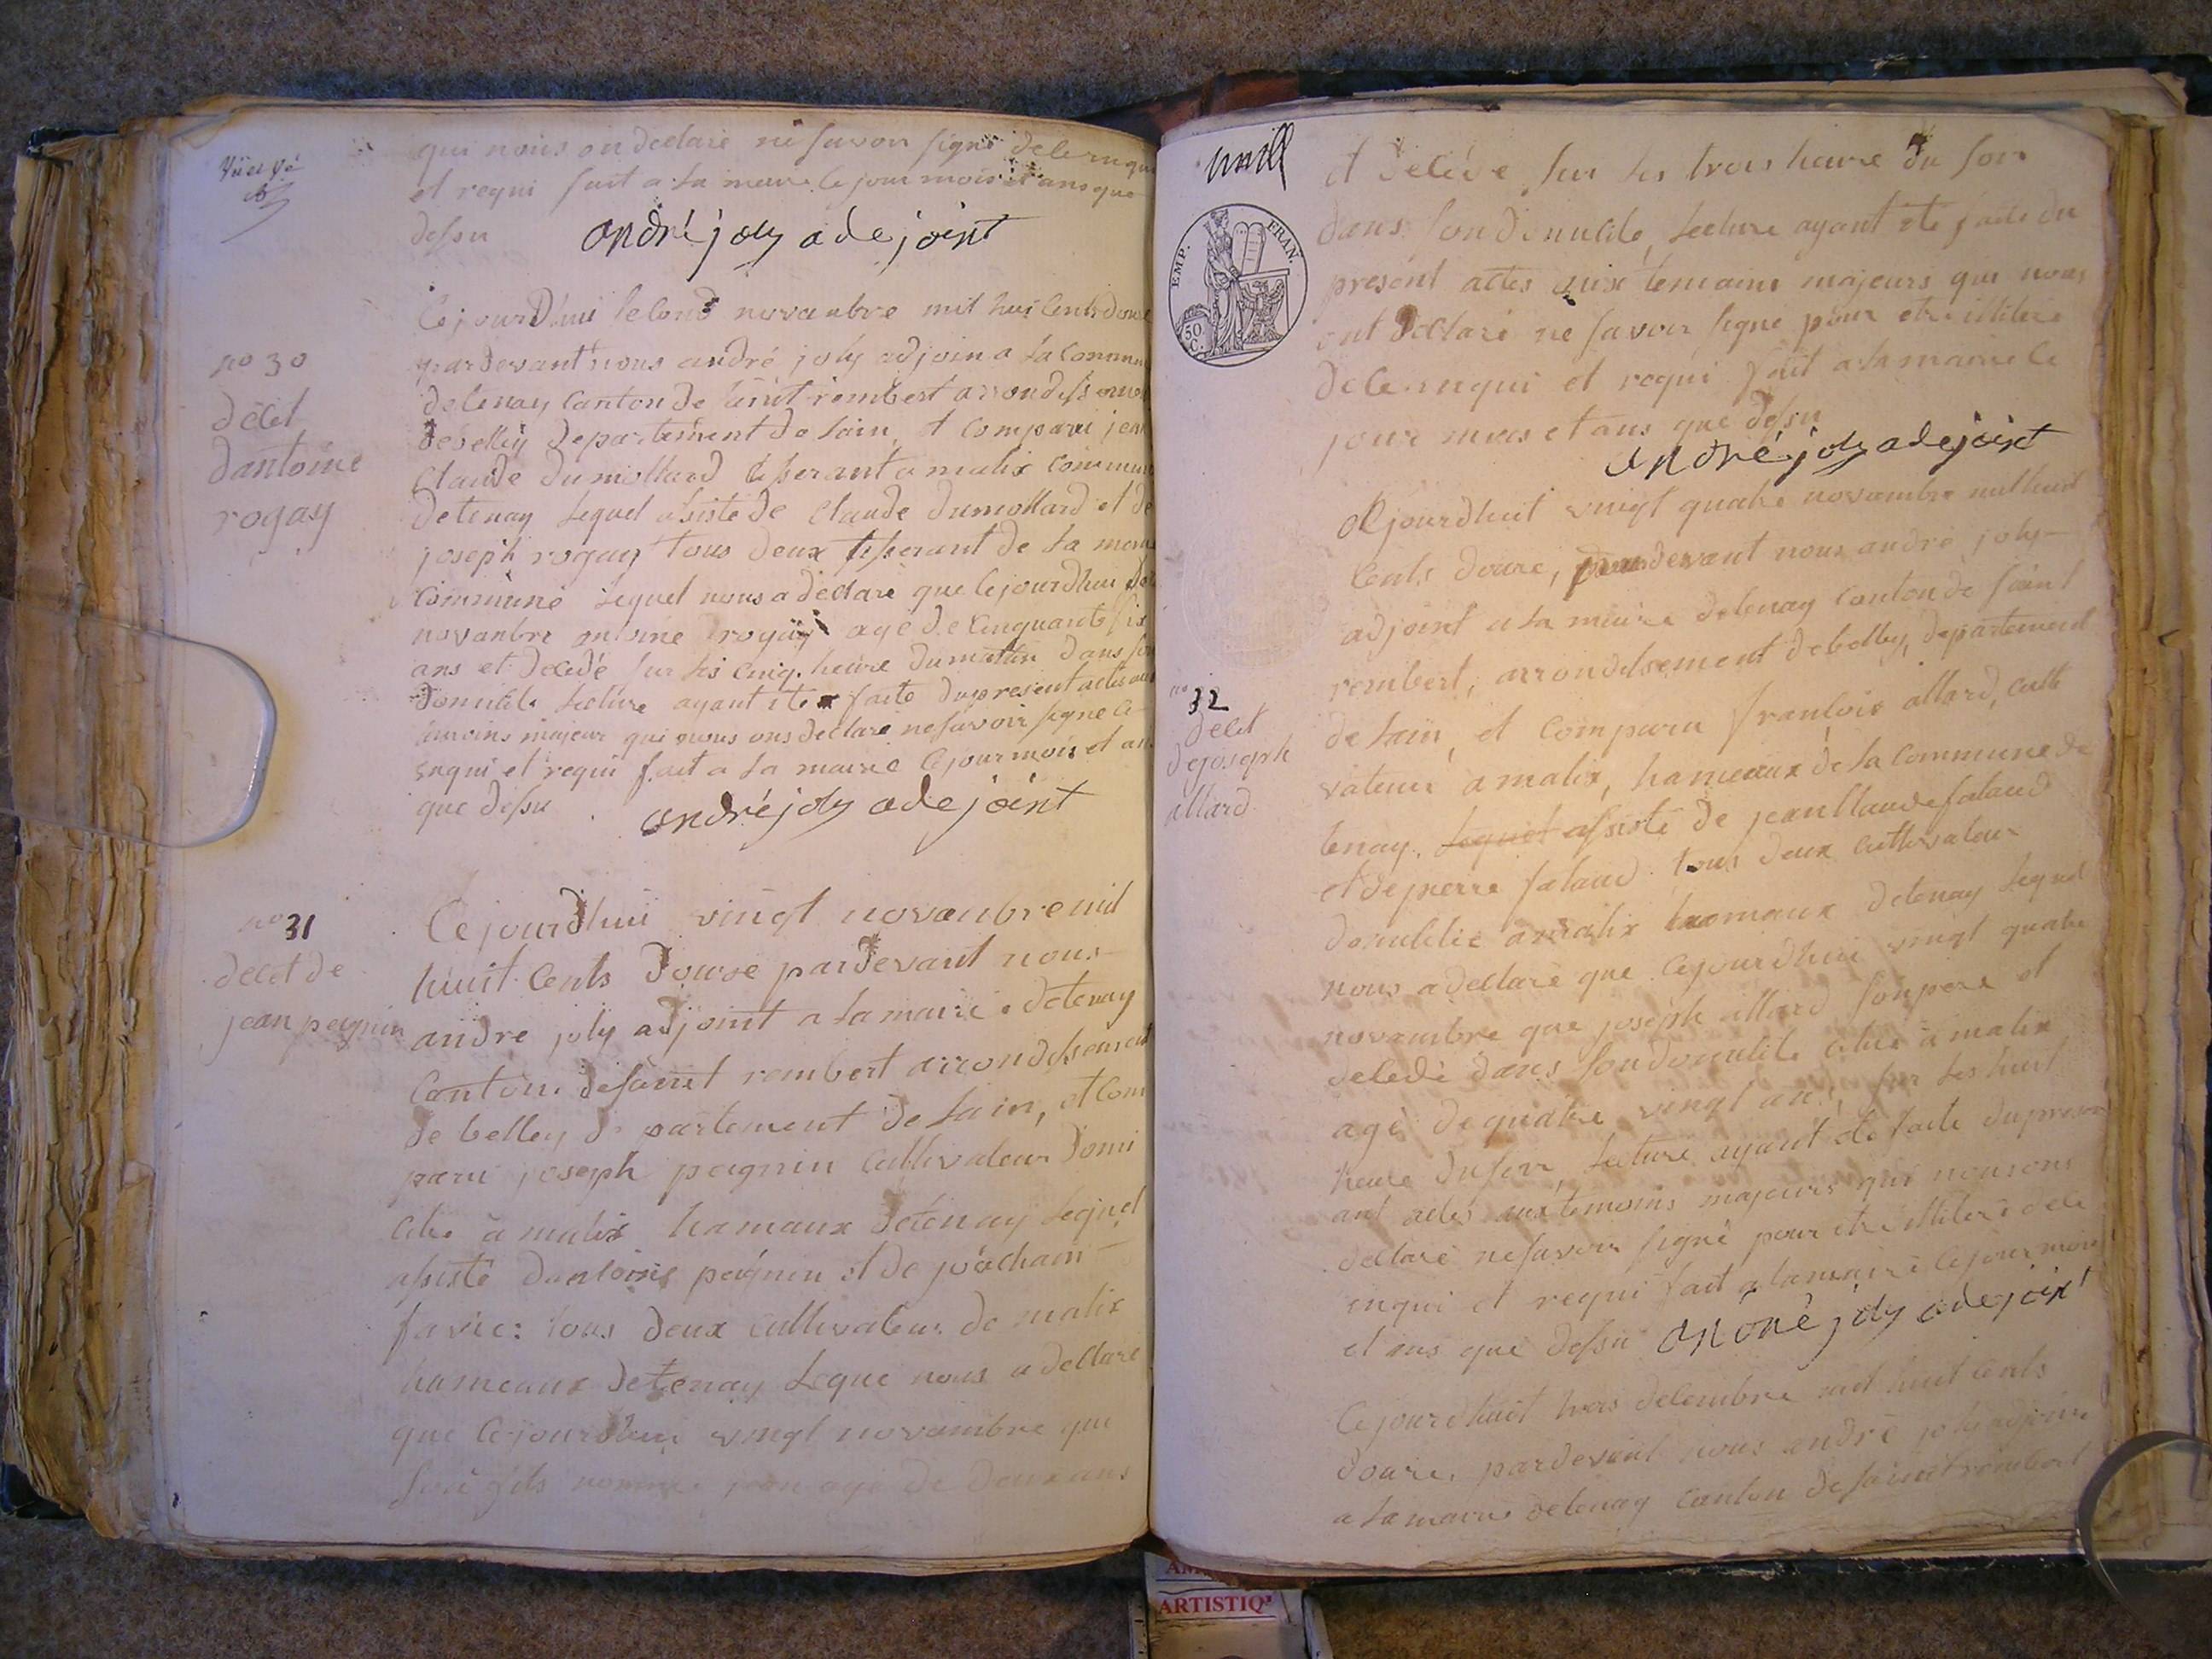 qui nous on declaré ne savoir signé de le inqui
et requi fait a la meire le jour mois et ans que
dessu
andré joly adejoint
no 30
décet
dantoine
rogay
Cejourdhui second novanbre mil hui cents douse
pardevant nous andré joly adjoin a la Commune
detenay Canton de saint rembert arrondissement
debelley departement de lain, et comparu jean
Claude dumollard tisserant a malix commune
detenay lequel asisté de Claude dumollard et de
joseph rogay tous deux tisserant de la meme
Commune lequel nous a déclaré que lejourdhui
novanbre antoine rogay agé de cinquante six
ans et decedé sur les cinq heure dumattin dans son
domicile lecture ayant ete faite dupresent actes aux
temoins majeur qui nous ons declare nesavoir signe le
inqui et requi fait a la mairie lejour mois et ans
que dessu
andré joly adejoint
no 31
decet de
jean peignin
Cejourdhui vingt novanbre mil
huit Cents douse pardevant nous
andre joly adjoint a lamairie detenay
Canton desaint rembert arrondissement
de belley departement de lain, et Com
paru joseph peignin Cultivateur domi
cilié a malix hamaux detenay lequel
assisté dantoine peignin et de joachain
favre: tous deux cultivateur de malix
hameaux detenay leque nous a declaré
que lejourdhui vingt novambre que
son fils nommé jean agé de deux ans
et decede sur les trois heure du soir
dans son domicile, lecture ayant ete faite du
present actes aux temoins majeurs qui nous
ont declaré ne savoir signé pour etre illiteré
dele inqui et requi fait a la mairie le
jour mois et ans que dessu
andré joly adejoint
EMP. FRAN.
50 C.
no 32
decet
dejoseph
allard
Cejourdhuit vingt quatre novambre mil huit
Cents douze, pardevant nous andré joly
adjoint a la mairie detenay canton de saint
rembert, arrondissement debelley, departement
de lain, et comparu francois allard, culti
vateur a malix, hameaux de la Commune de
tenay. lequel assisté de jean Claude falaud
et de pierre falaud tous deux cultivateur
domicilié a malix hamaux detenay lequel
nous a declaré que lejourdhui vingt quatre
novambre que joseph allard son pere et
decedé dans son domicile citué a malix
agé de quatre vingt ans, sur les huit
heure du soir, lecture ayant ete faite dupres
ant actes aux temoins majeurs qui nous ons
declaré nesavoir signé pour etre illiteré dele
inqui et requi fait a lamairie lejour mois
et ans que dessu andré joly adejoint
Cejourdhuit trois decembre mil huit cents
douze, pardevant nous andré joly adjoint
a la mairie detenay canton de saint rembert
ARTISTIQ